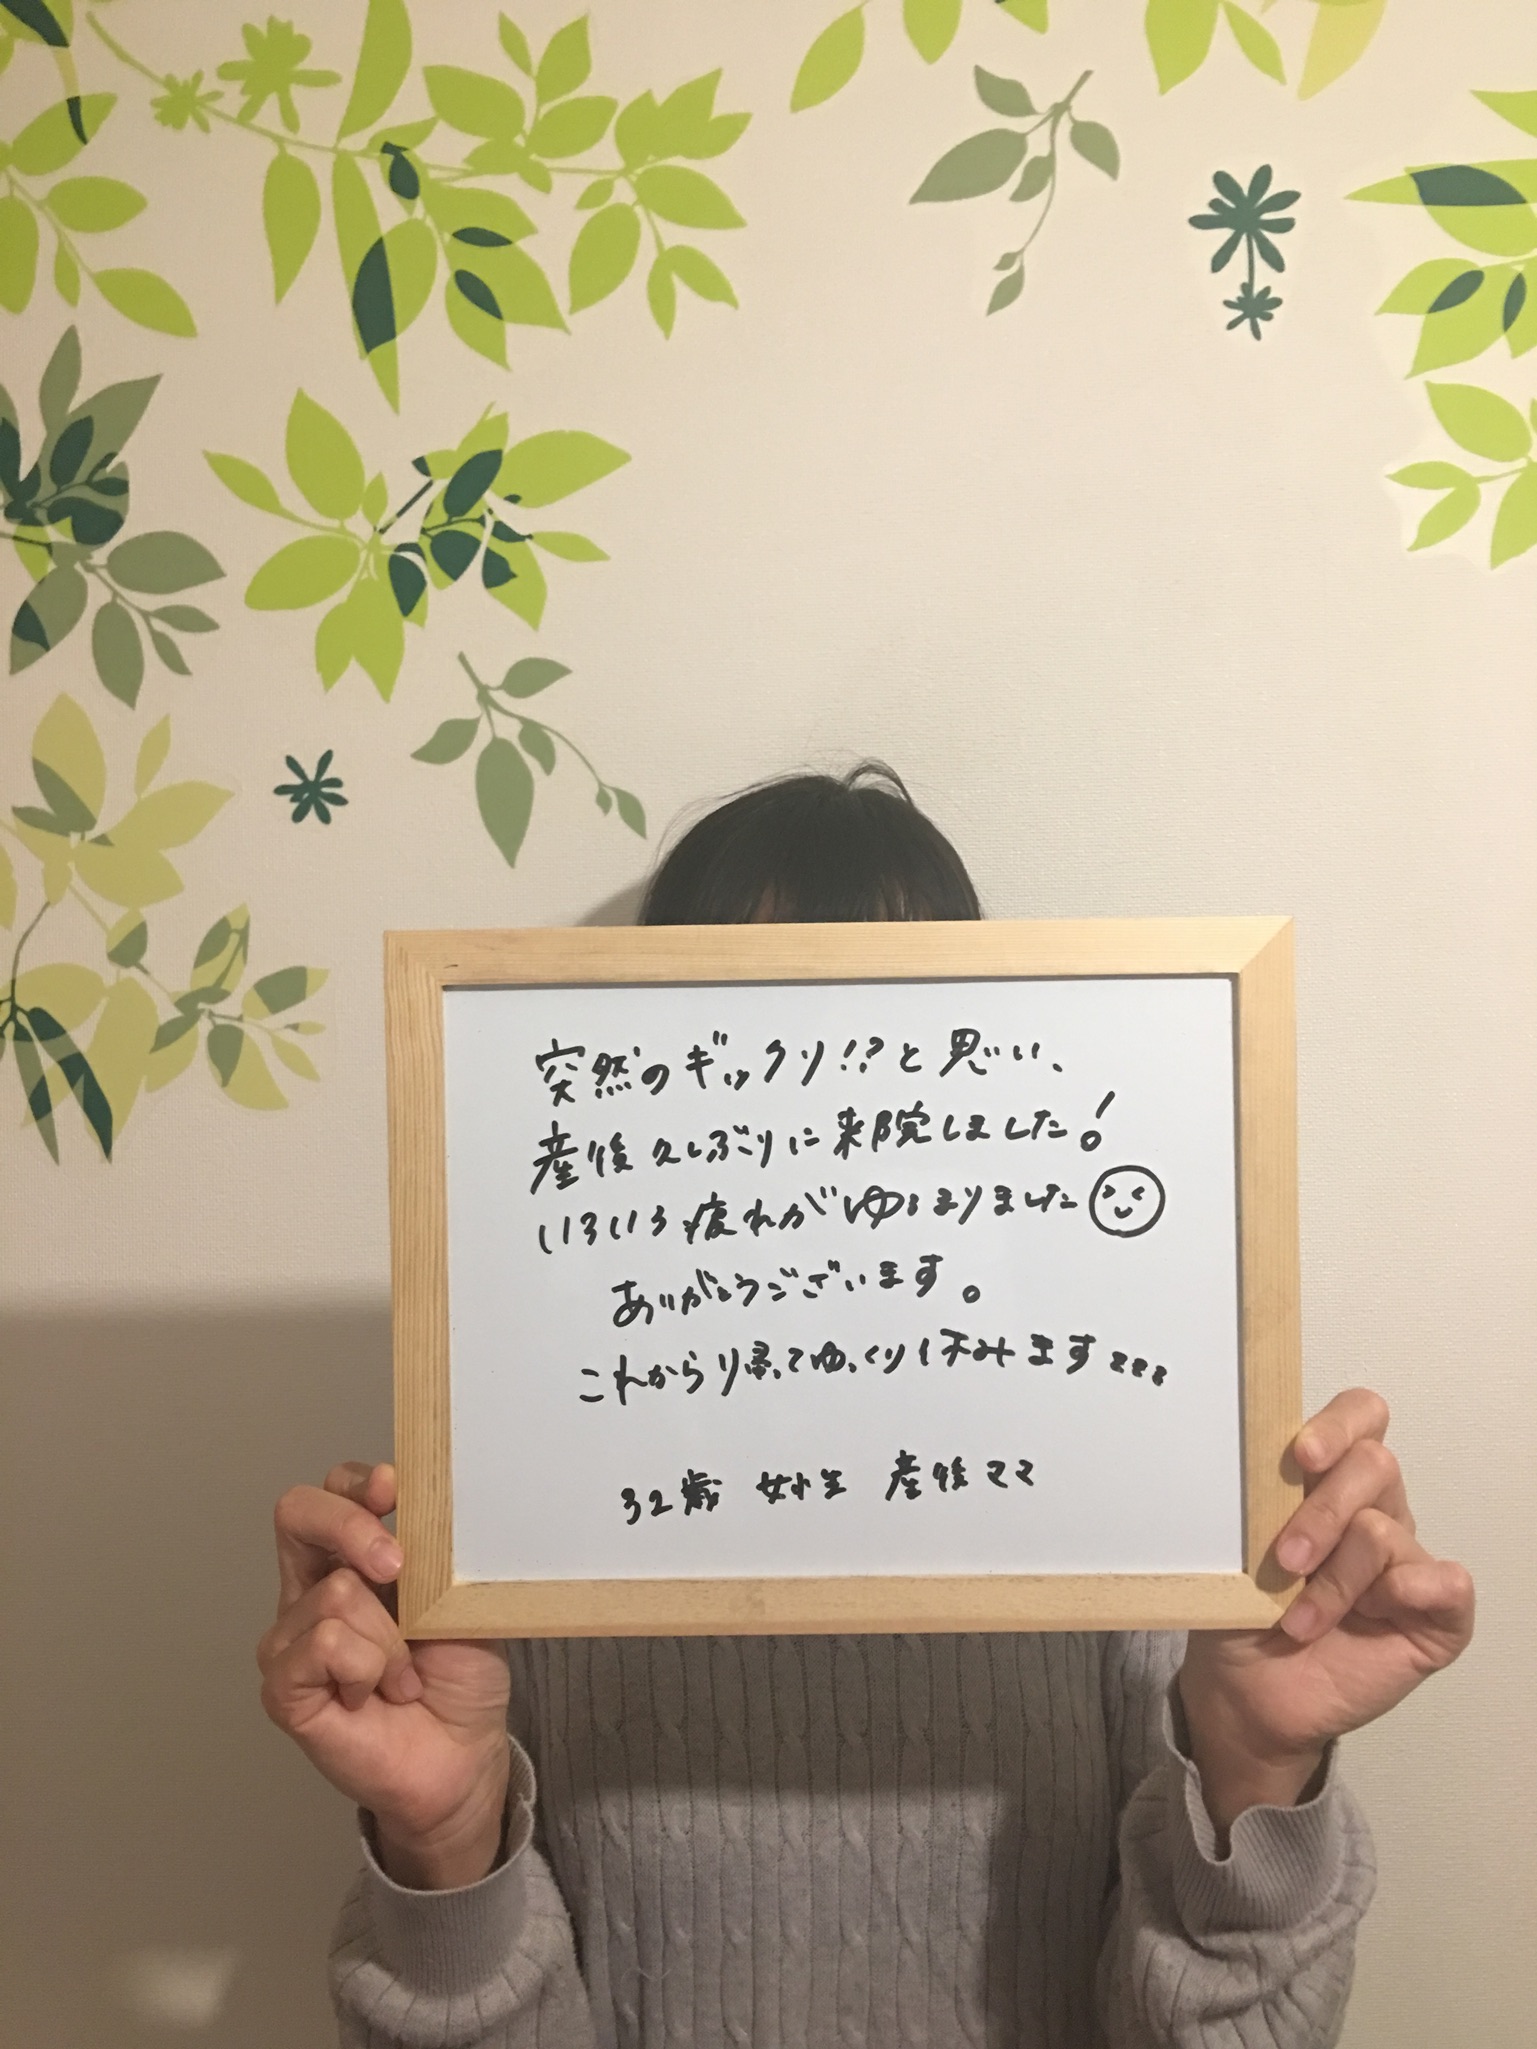 突然のギックリ!?と思い、
産後久しぶりに来院しました!
いろいろ疲れがゆるまりました
ありがとうございます。
これから帰ってゆっくり休みますzzz
32歳 女性 産後ママ